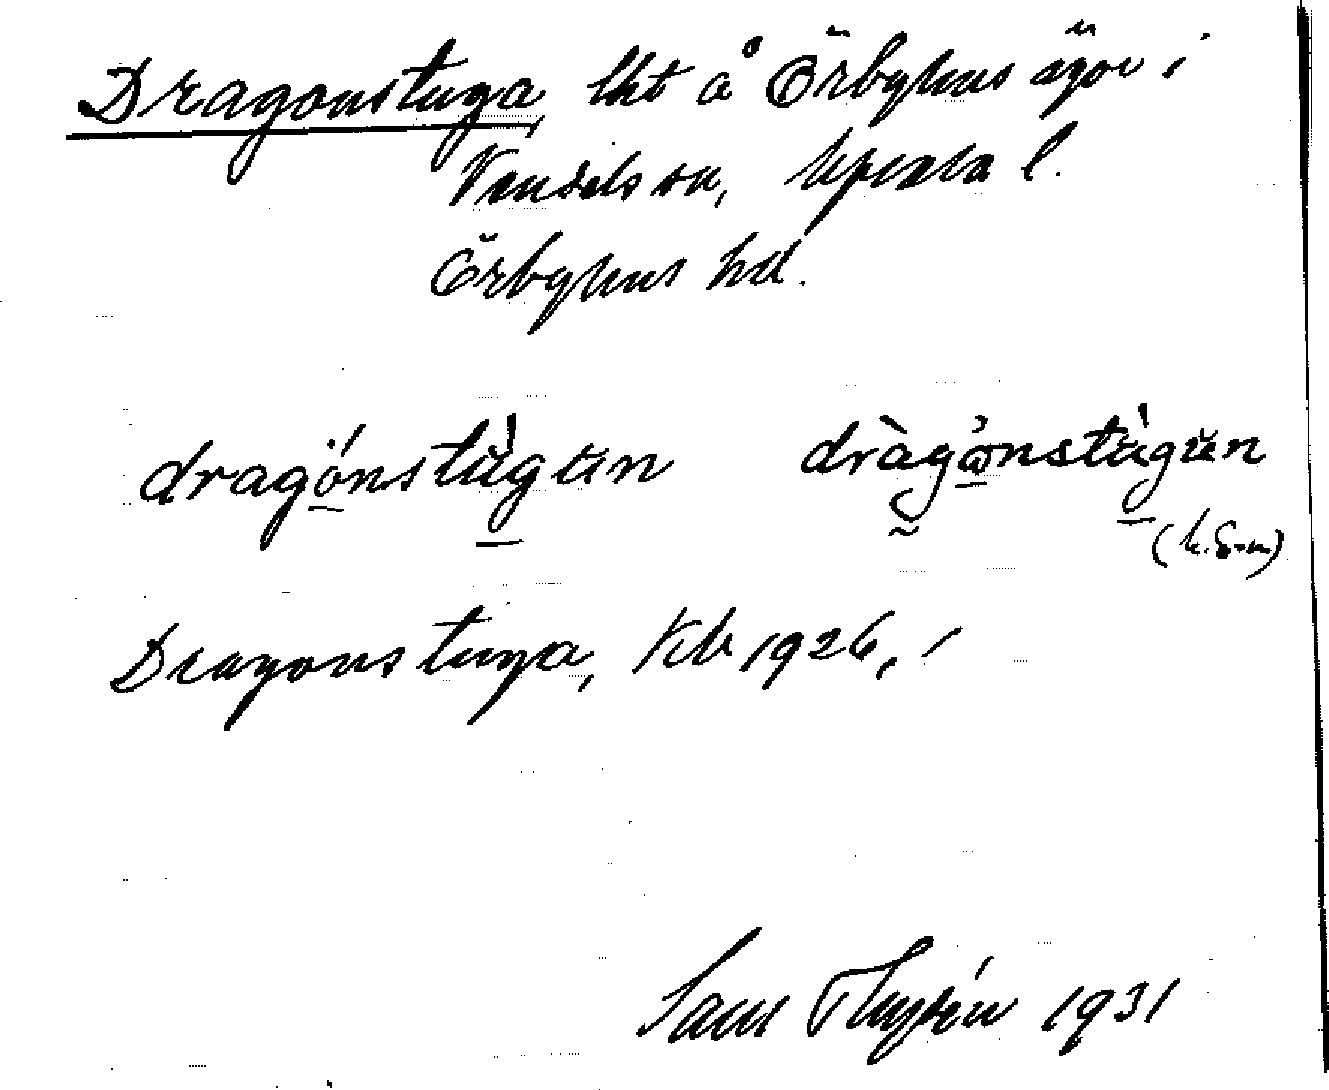 Dragonstuga, lht å Örbyhus ägor i
Vendels sn, Upsala l.
Örbyhus hd.
dragónstùgun dràgɷ̀nstùgun
Dragonstuga, Kb 1926,
1931